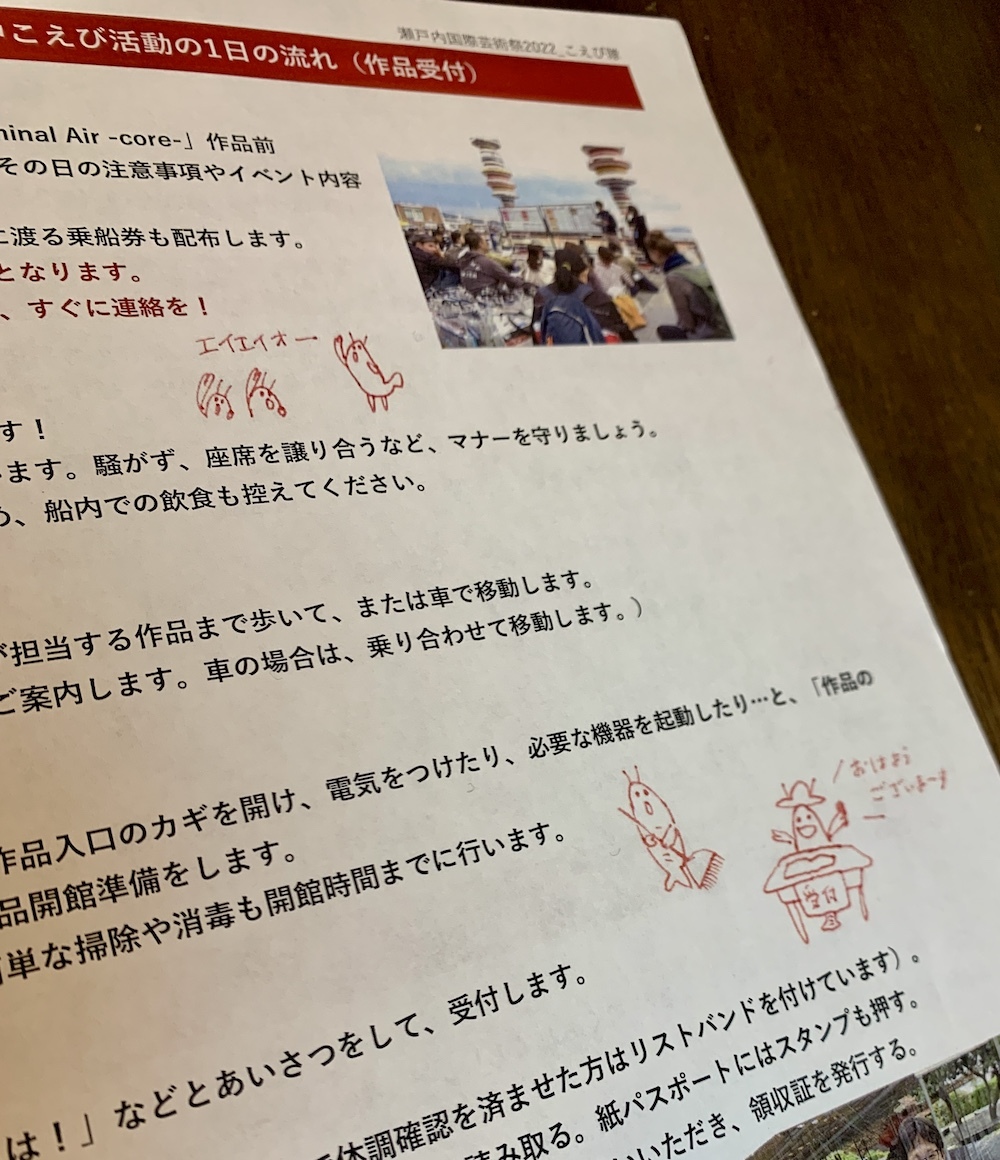 瀬戸内国際芸術祭2022_こえび隊
こえび活動の1日の流れ（作品受付）
minal Air -core-」作品前
その日の注意事項やイベント内容
に渡る乗船券も配布します。
となります。
、すぐに連絡を！
エイエイオー
す！
ます。騒がず、座席を譲り合うなど、マナーを守りましょう。
め、船内での飲食も控えてください。
が担当する作品まで歩いて、または車で移動します。
ご案内します。車の場合は、乗り合わせて移動します。）
作品入口のカギを開け、電気をつけたり、必要な機器を起動したり…と、「作品の
品開館準備をします。
簡単な掃除や消毒も開館時間までに行います。
おはよう
ございまーす
受付
は！」などとあいさつをして、受付します。
体調確認を済ませた方はリストバンドを付けています）。
読み取る。紙パスポートにはスタンプも押す。
いただき、領収証を発行する。